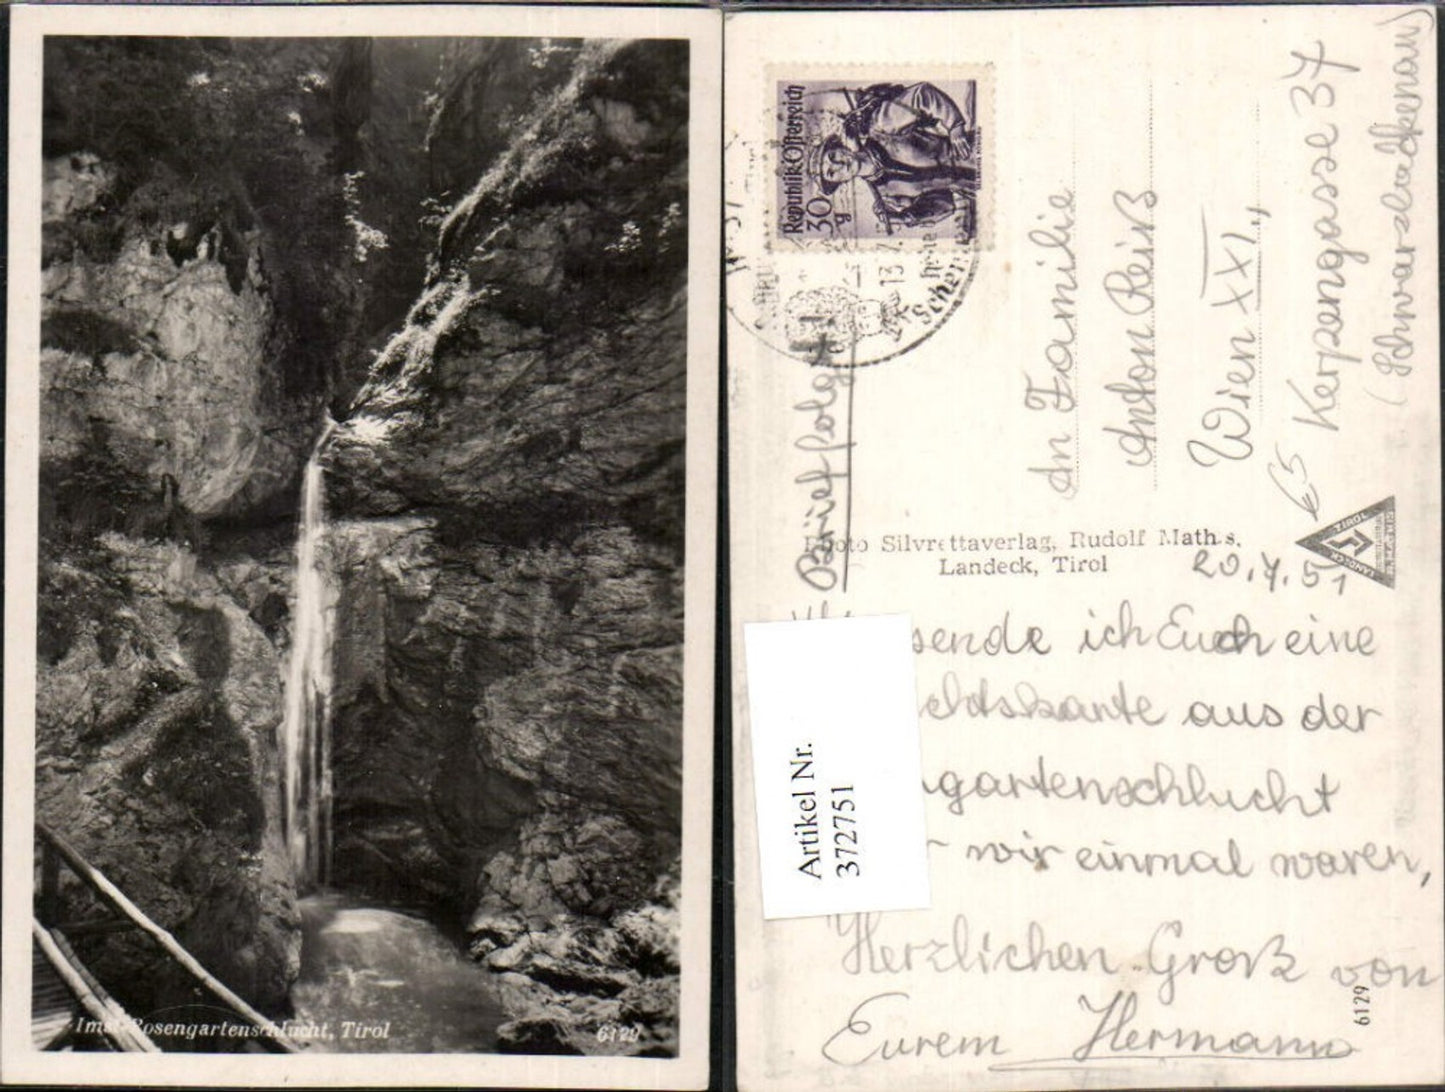 Imst-Rosengartenschlucht, Tirol
6129
Republik Österreich
30 g
Brief folgt
An Familie
Anton Reiß
Wien XXI.,
65 Kerpengasse 37
(Schwarzlackenau)
Photo Silvrettaverlag, Rudolf Mathis,
Landeck, Tirol
TIROL
LANDECK
20.7.51
sende ich Euch eine
aus der
gartenschlucht
wir einmal waren,
Herzlichen Groß von
Eurem Hermann
6129
Artikel Nr.
372751